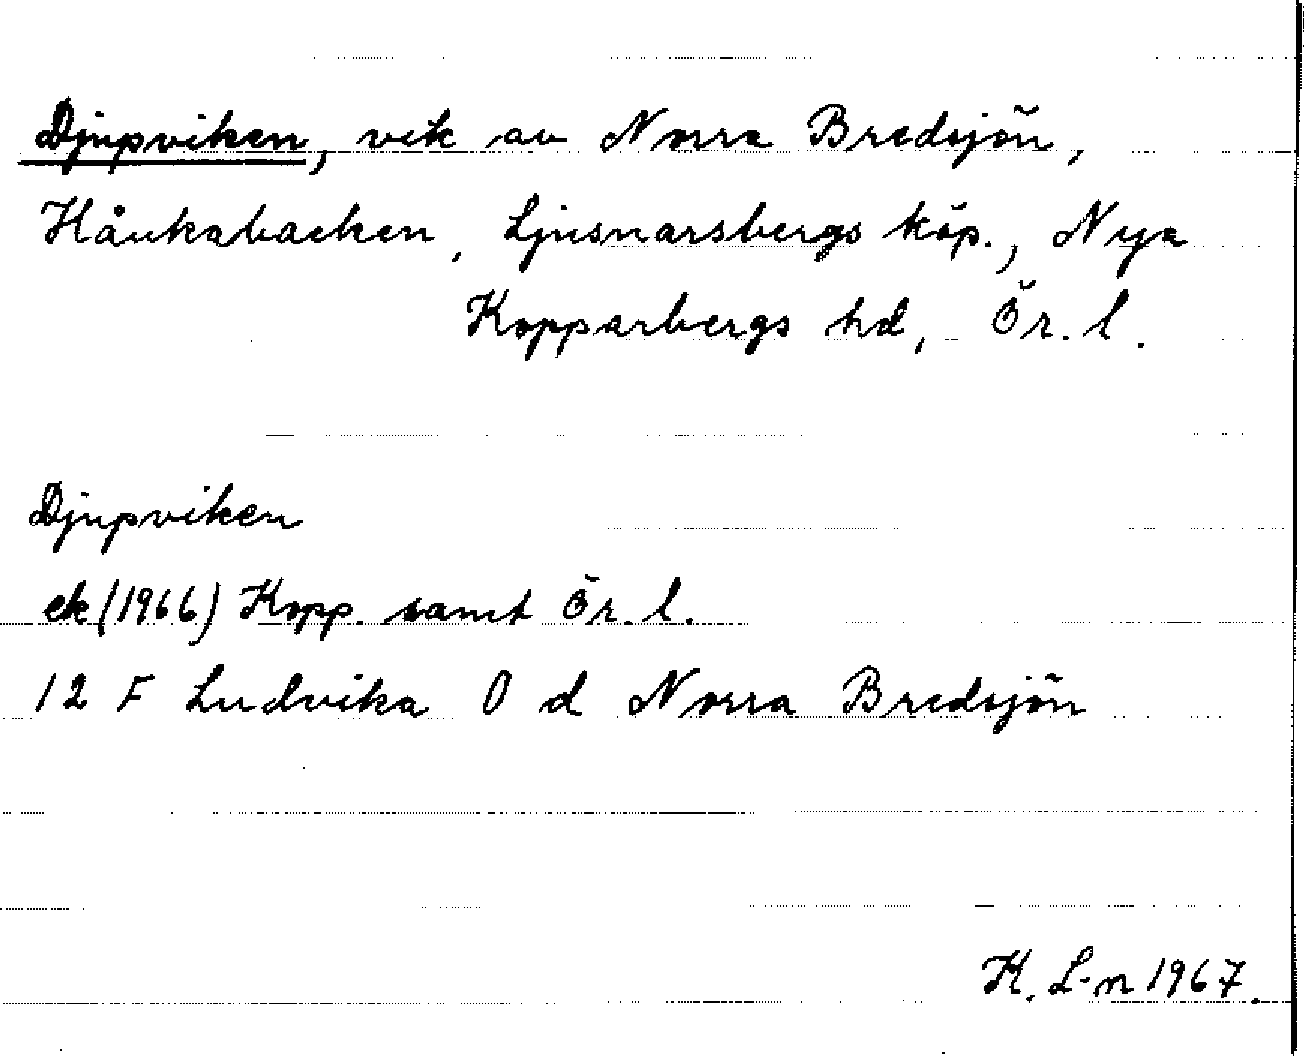 Djupviken, vik av Norra Bredsjön,
Håukabacken, Ljusnarsbergs köp., Nya
Kopparbergs hd, Ör. l.
Djupviken
ek (1966) Kopp. samt Ör. l.
12 F Ludvika 0 d Norra Bredsjön
K. L-n 1967.